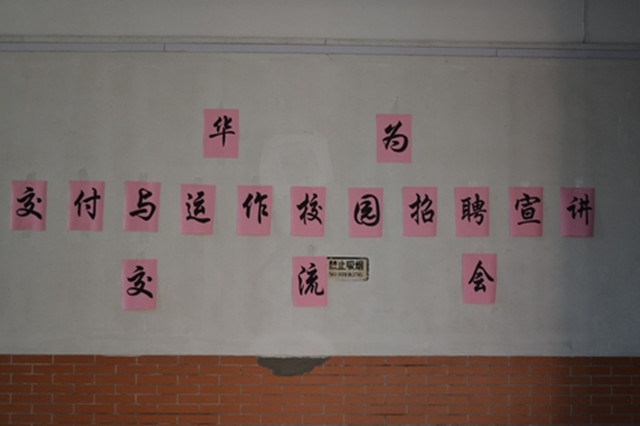 华为
交付与运作校园招聘宣讲
交流会
禁止吸烟
NO SMOKING